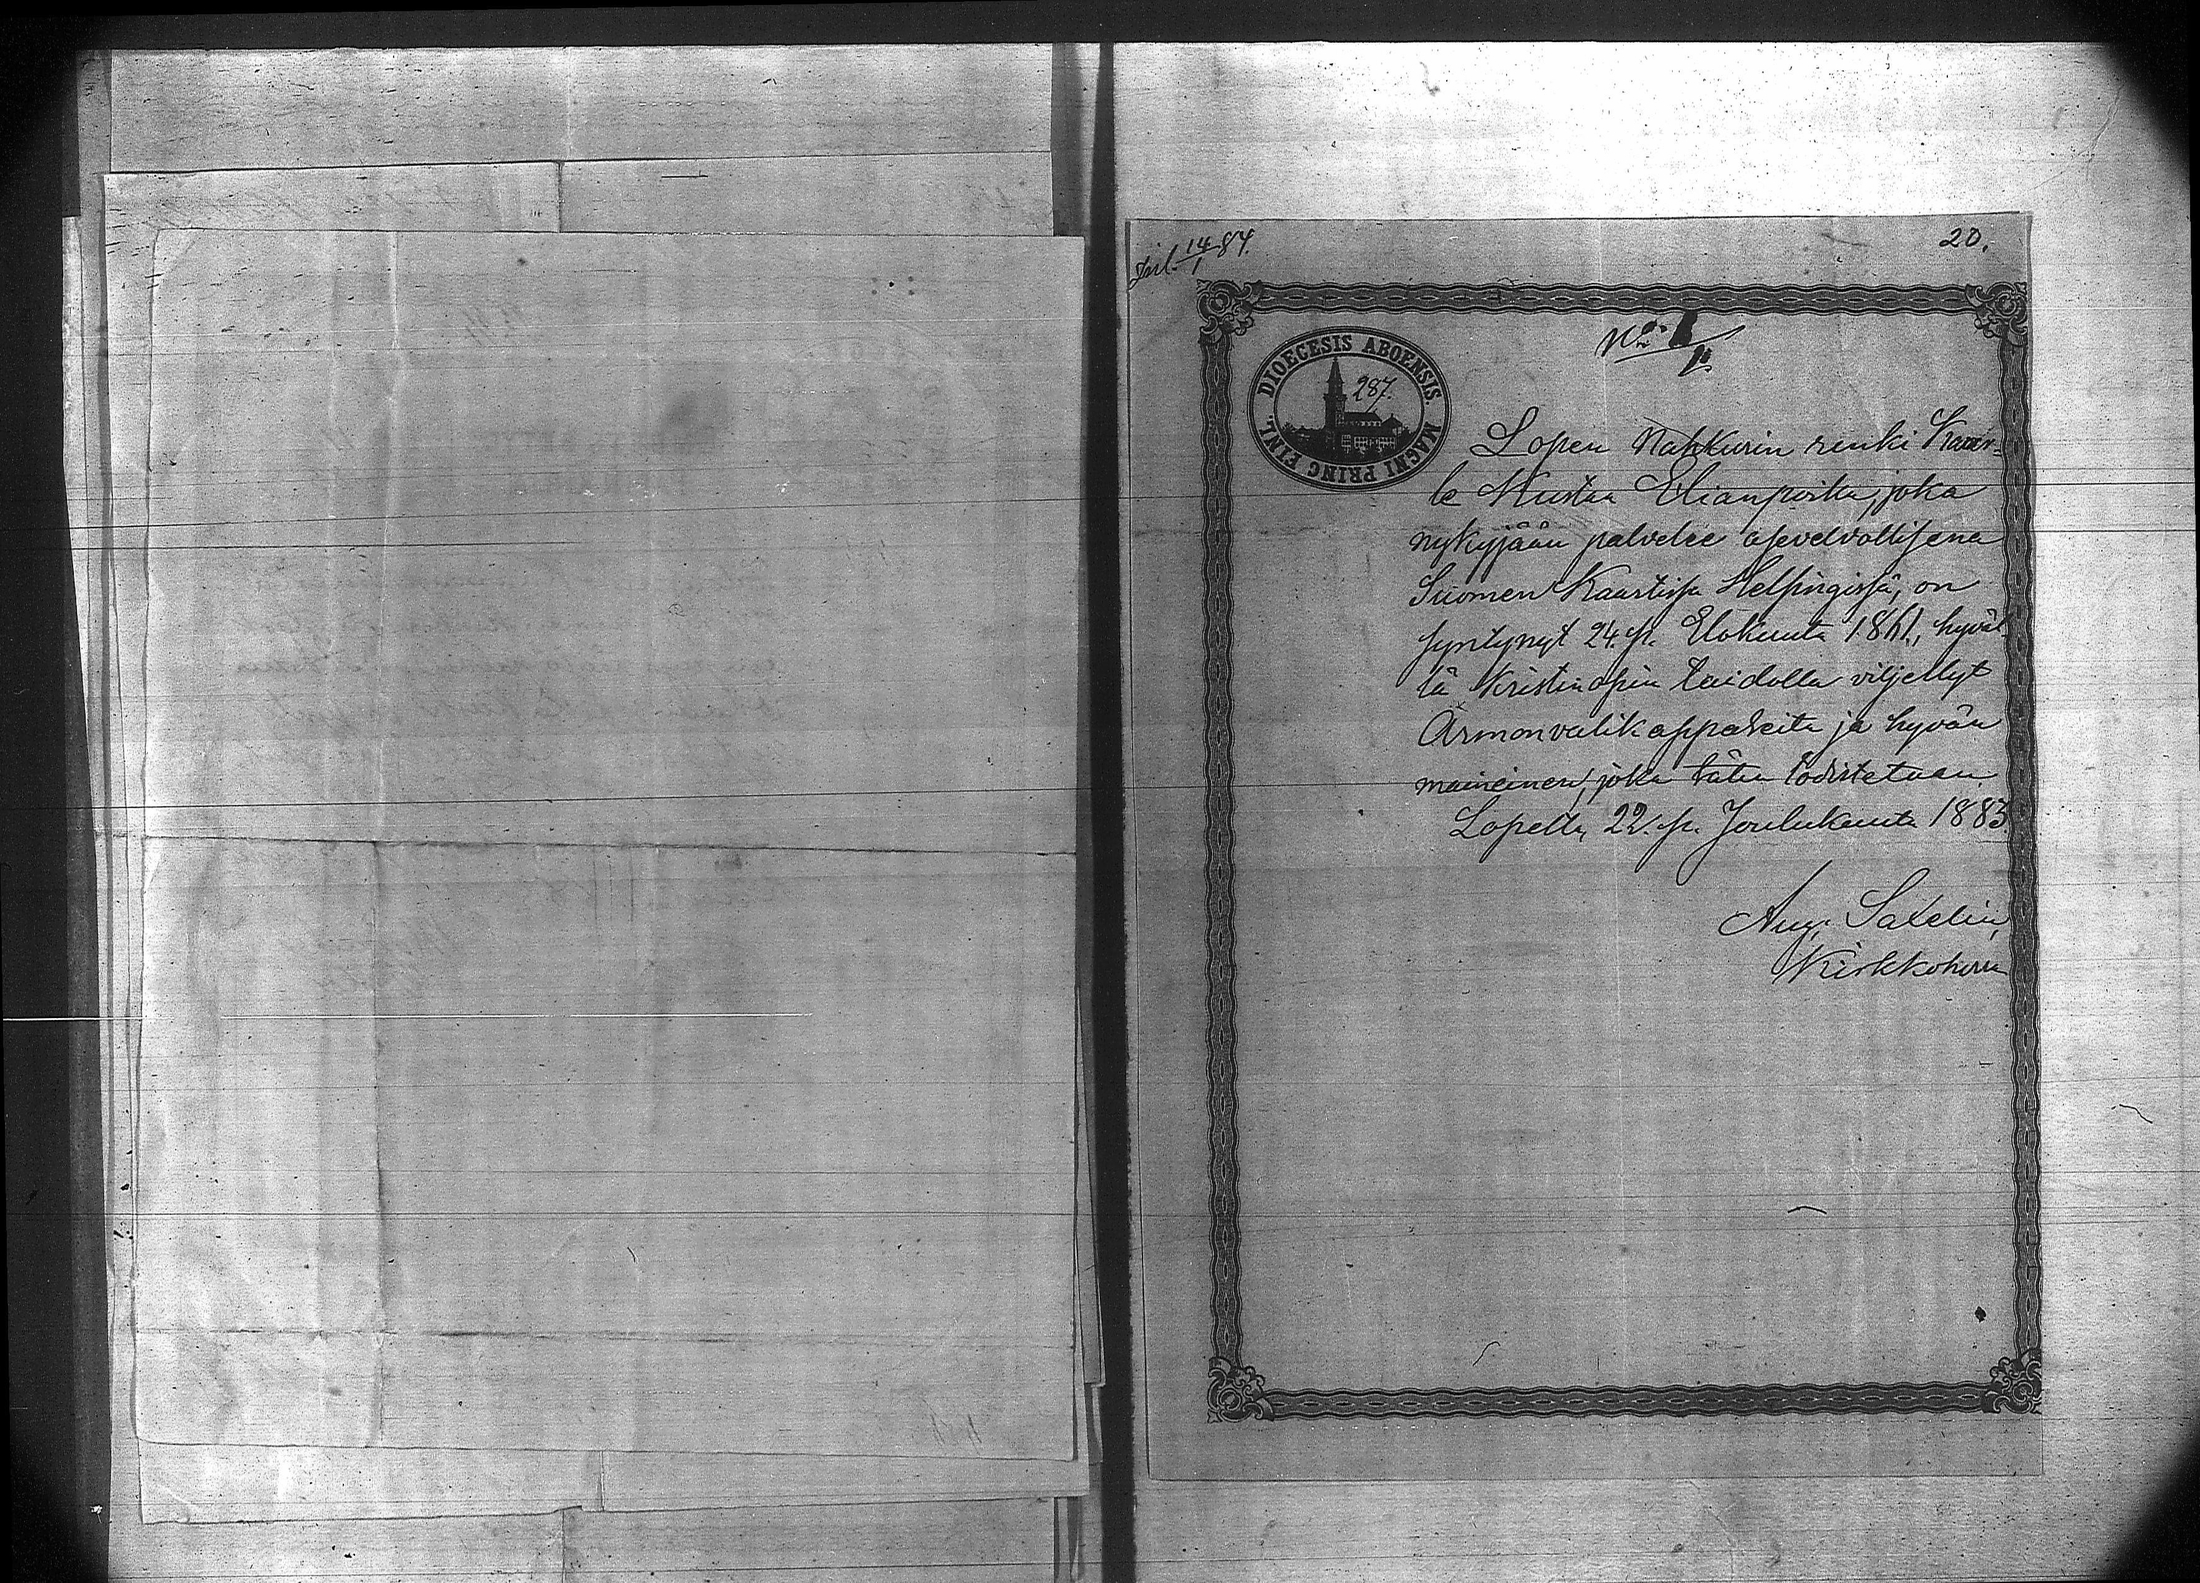 Inl. 14/1 84.
20.
DIOECESIS ABOENSIS. MAGNI PRINC FINL.
287.
Lopen Nahkurin renki Kaar-
le Kustaa Elianpoika, joka
nykyjään palvelee asevelvollisena
Suomen Kaartissa Helsingissä, on
syntynyt 24. p. Elokuuta 1861, hyväl-
lä Kristinopin taidolla viljellyt
Armonvälikappaleita ja hyvän
maineinen, joka täten todistetaan.
Lopella 22. p. Joulukuuta 1883.
Aug. Saxelin,
Kirkkoherra